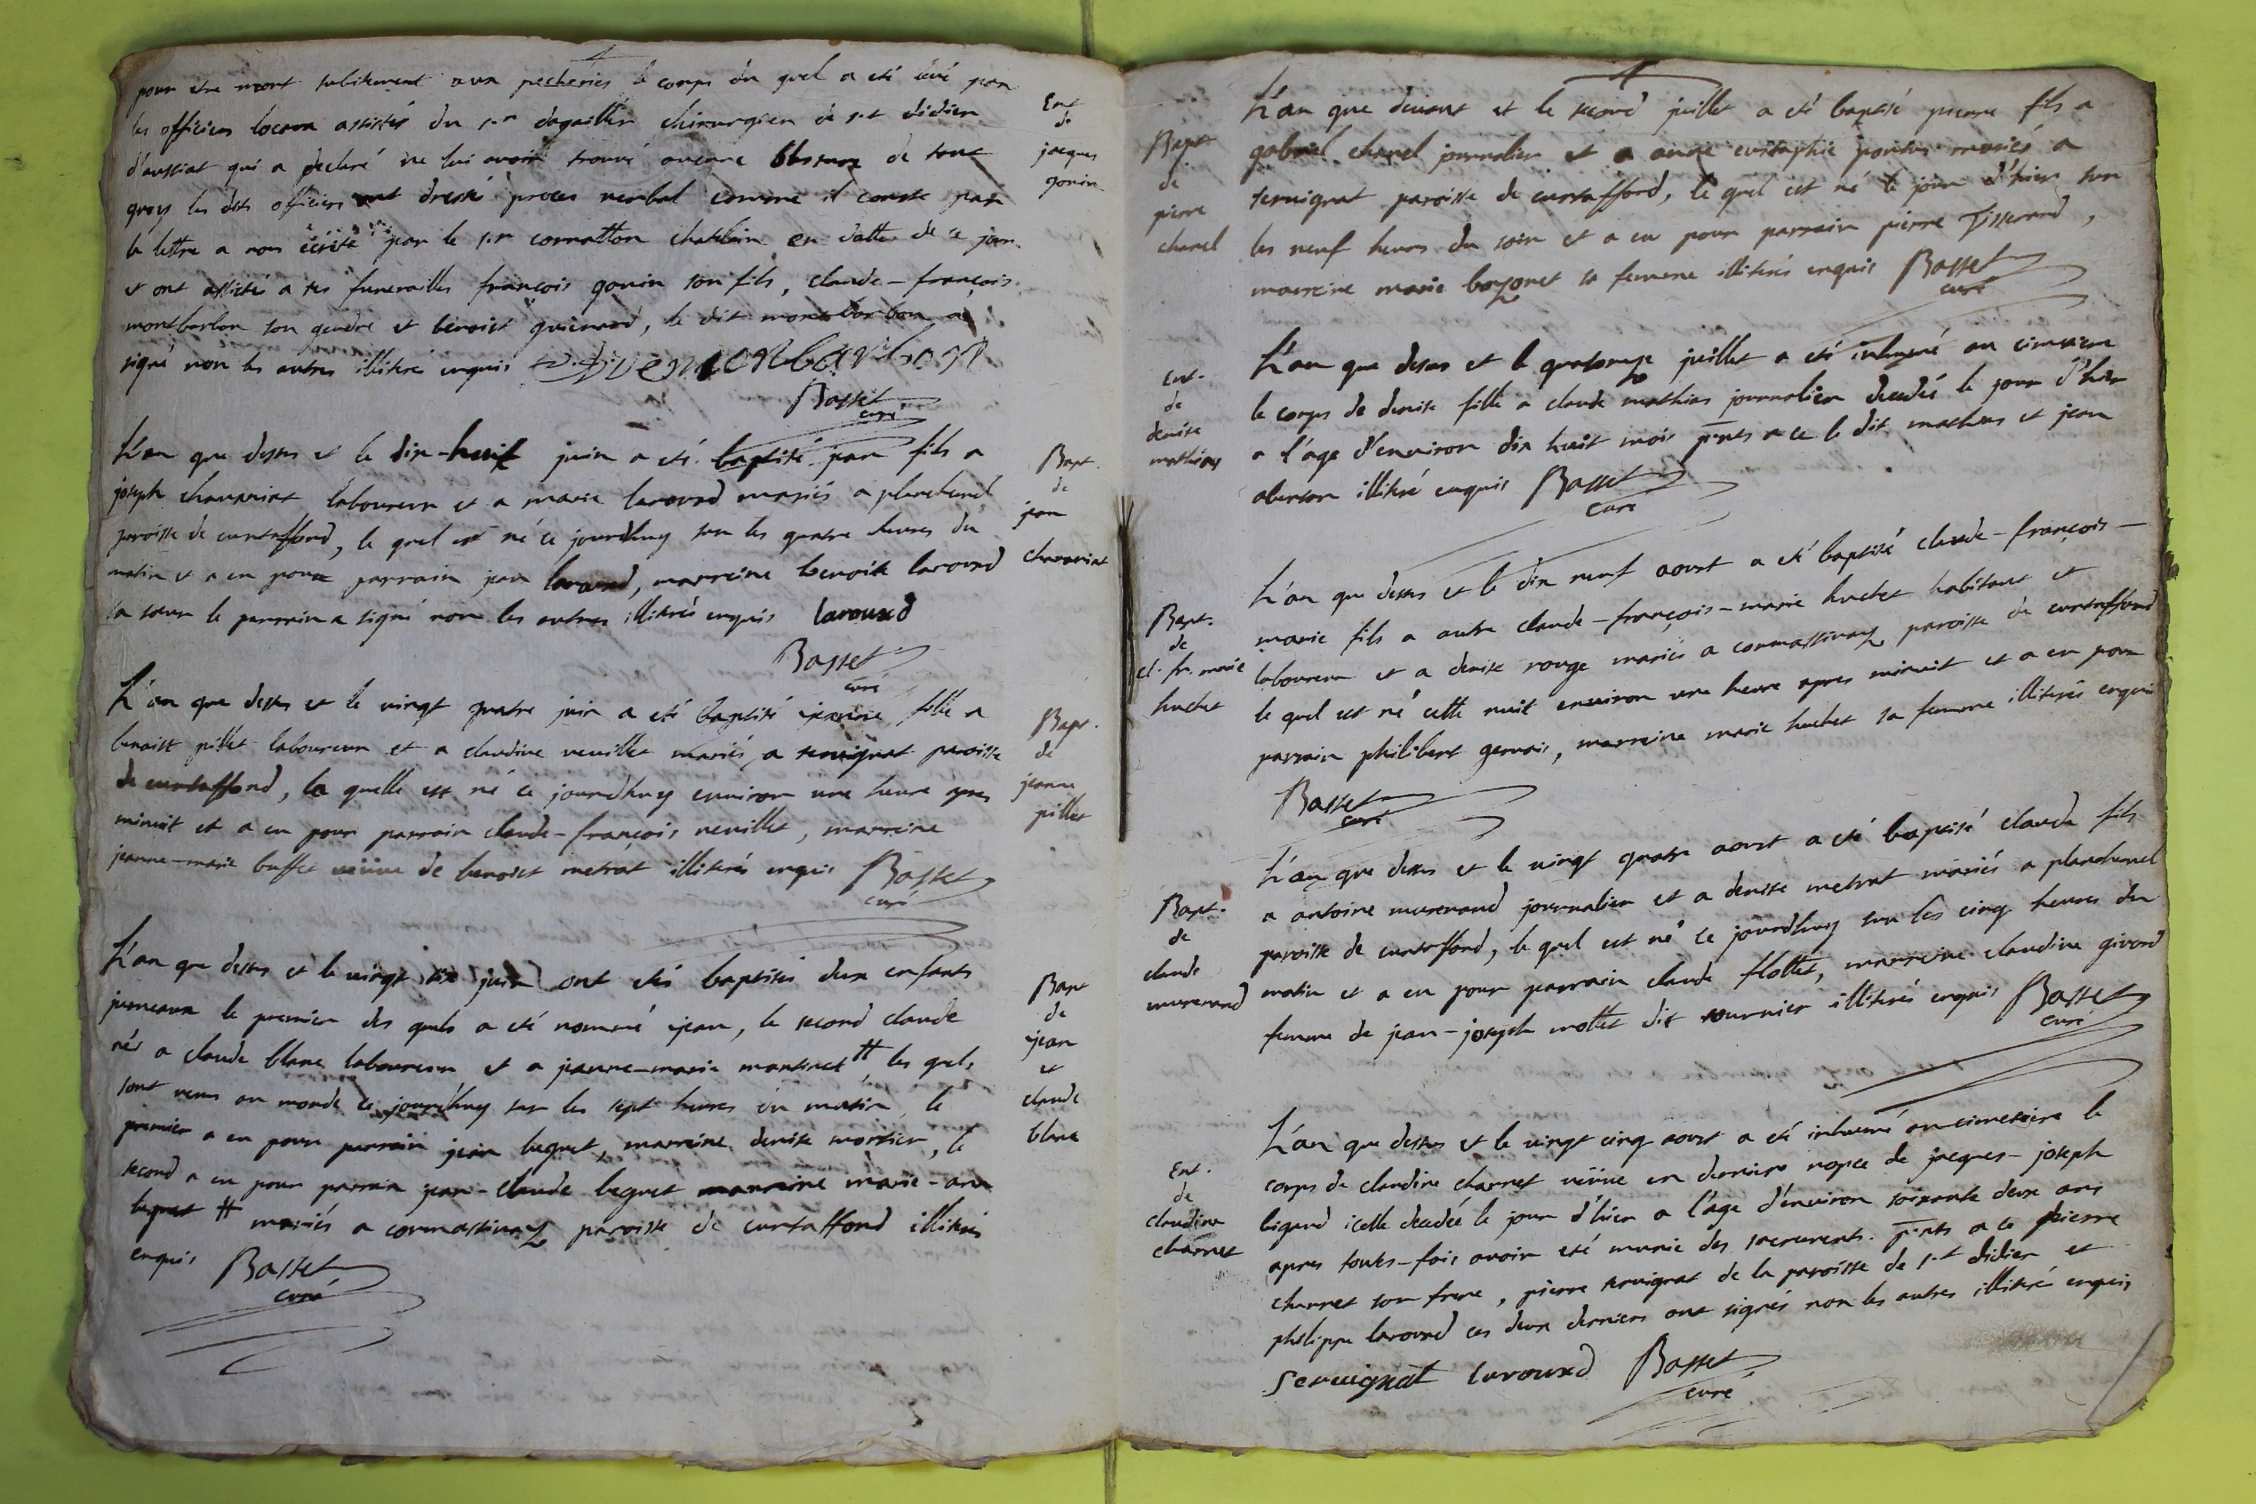 pour etre mort subitement aux pecheries le corps du quel a eté levé par
les officiers locaux assistés du s.r dagallier chirurgien de s.t didier
d'aussiat qui a declaré ne lui avoir trouvé aucune blessure de tout
quoy les dits officiers ont dressé proces verbal comme il conste par
la lettre a nous ecrite par le s.r cornatton chatelain en datte de ce jour
et ont assistés a ses funerailles françois gonin son fils, claude-françois
montbarbon son gendre et benoist guienard, le dit montbarbon a
signé non les autres illitéré enquis montbarbon
Basset
curé
Ent
de
jacques
gonin
L'an que dessus et le dix-huit juin a eté baptisé jean fils a
joseph chavariat laboureur et a marie laround mariés a planchenel
paroisse de curtaffond, le quel est né ce jourdhuy sur les quatre heures du
matin et a eu pour parrain jean laround, marreine benoite laround
sa soeur le parrain a signé non les autres illitérés enquis laround
Basset
curé
Bapt.
de
jean
chavariat
L'an que dessus et le vingt quatre juin a eté baptisé jeanne fille a
benoist pillet laboureur et a claudine neuillet mariés a servignat paroisse
de curtaffond, la quelle est né ce jourdhuy environ une heure apres
minuit et a eu pour parrain claude-françois neuillet, marreine
jeanne-marie buffet veuve de benoist metrat illiterés enquis Basset
curé
Bapt.
de
jeanne
pillet
L'an que dessus et le vingt six juin ont etés baptisés deux enfants
jumeaux le premier des quels a eté nommé jean, le second claude
nés a claude blanc laboureur et a jeanne-marie mantret # les quels
sont venus au monde ce jourdhuy sur les sept heures du matin, le
premier a eu pour parrain jean beguet, marreine denise mortier, le
second a eu pour parrain jean-claude beguet marreine marie-ann
beguet # mariés a cormassinaz paroisse de curtaffond illiterés
enquis Basset
curé
Bapt
de
jean
et
claude
blanc
L'an que devant et le second juillet a eté baptisé pierre fils a
gabriel chanel journalier et a anne eustaphie pontus mariés a
servignat paroisse de curtaffond, le quel est né le jour d'hier sur
les neuf heures du soir et a eu pour parrain pierre Tisserand,
marreine marie bozonet sa femme illiterés enquis Basset
curé
Bapt
de
pierre
chanel
L'an que dessus et le quatorze juillet a eté inhumé au cimetiere
le corps de denise fille a claude mathias journalier decedés le jour d'hier
a l'age d'environ dix huit mois p.nts a ce le dit mathias et jean
illitéré enquis Basset
curé
Ent.
de
denise
mathias
L'an que dessus et le dix neuf aoust a eté baptisé claude-françois-
marie fils a autre claude-françois-marie huchet habitant et
laboureur et a denise rouge mariés a cormassinaz paroisse de curtaffond
le quel est né cette nuit environ une heure apres minuit et a eu pour
parrain philibert gervais, marreine marie huchet sa femme illiterés enquis
Basset
curé
Bapt.
de
cl. fr. marie
huchet
L'an que dessus et le vingt quatre aoust a eté baptisé claude fils
a antoine murenand journalier et a denise metrat mariés a planchenel
paroisse de curtaffond, le quel est né ce jourdhuy sur les cinq heures du
matin et a eu pour parrain claude flottet, marreine claudine givord
femme de jean-joseph mottet dit tournier illiterés enquis Basset
curé
Bapt.
de
claude
murenand
L'an que dessus et le vingt cinq aoust a eté inhumé au cimetaire le
corps de claudine charnet veuve en derniere nopce de jacques-joseph
ligand icelle decedée le jour d'hier a l'age d'environ soixante deux ans
apres toutes-fois avoir eté munie des sacrements. p.nts a ce pierre
charnet son frere, pierre servignat de la paroisse de s.t didier et
philippe laround ces deux derniers ont signés non les autres illitéré enquis
Servignat laround Basset
curé
Ent.
de
claudine
charnet